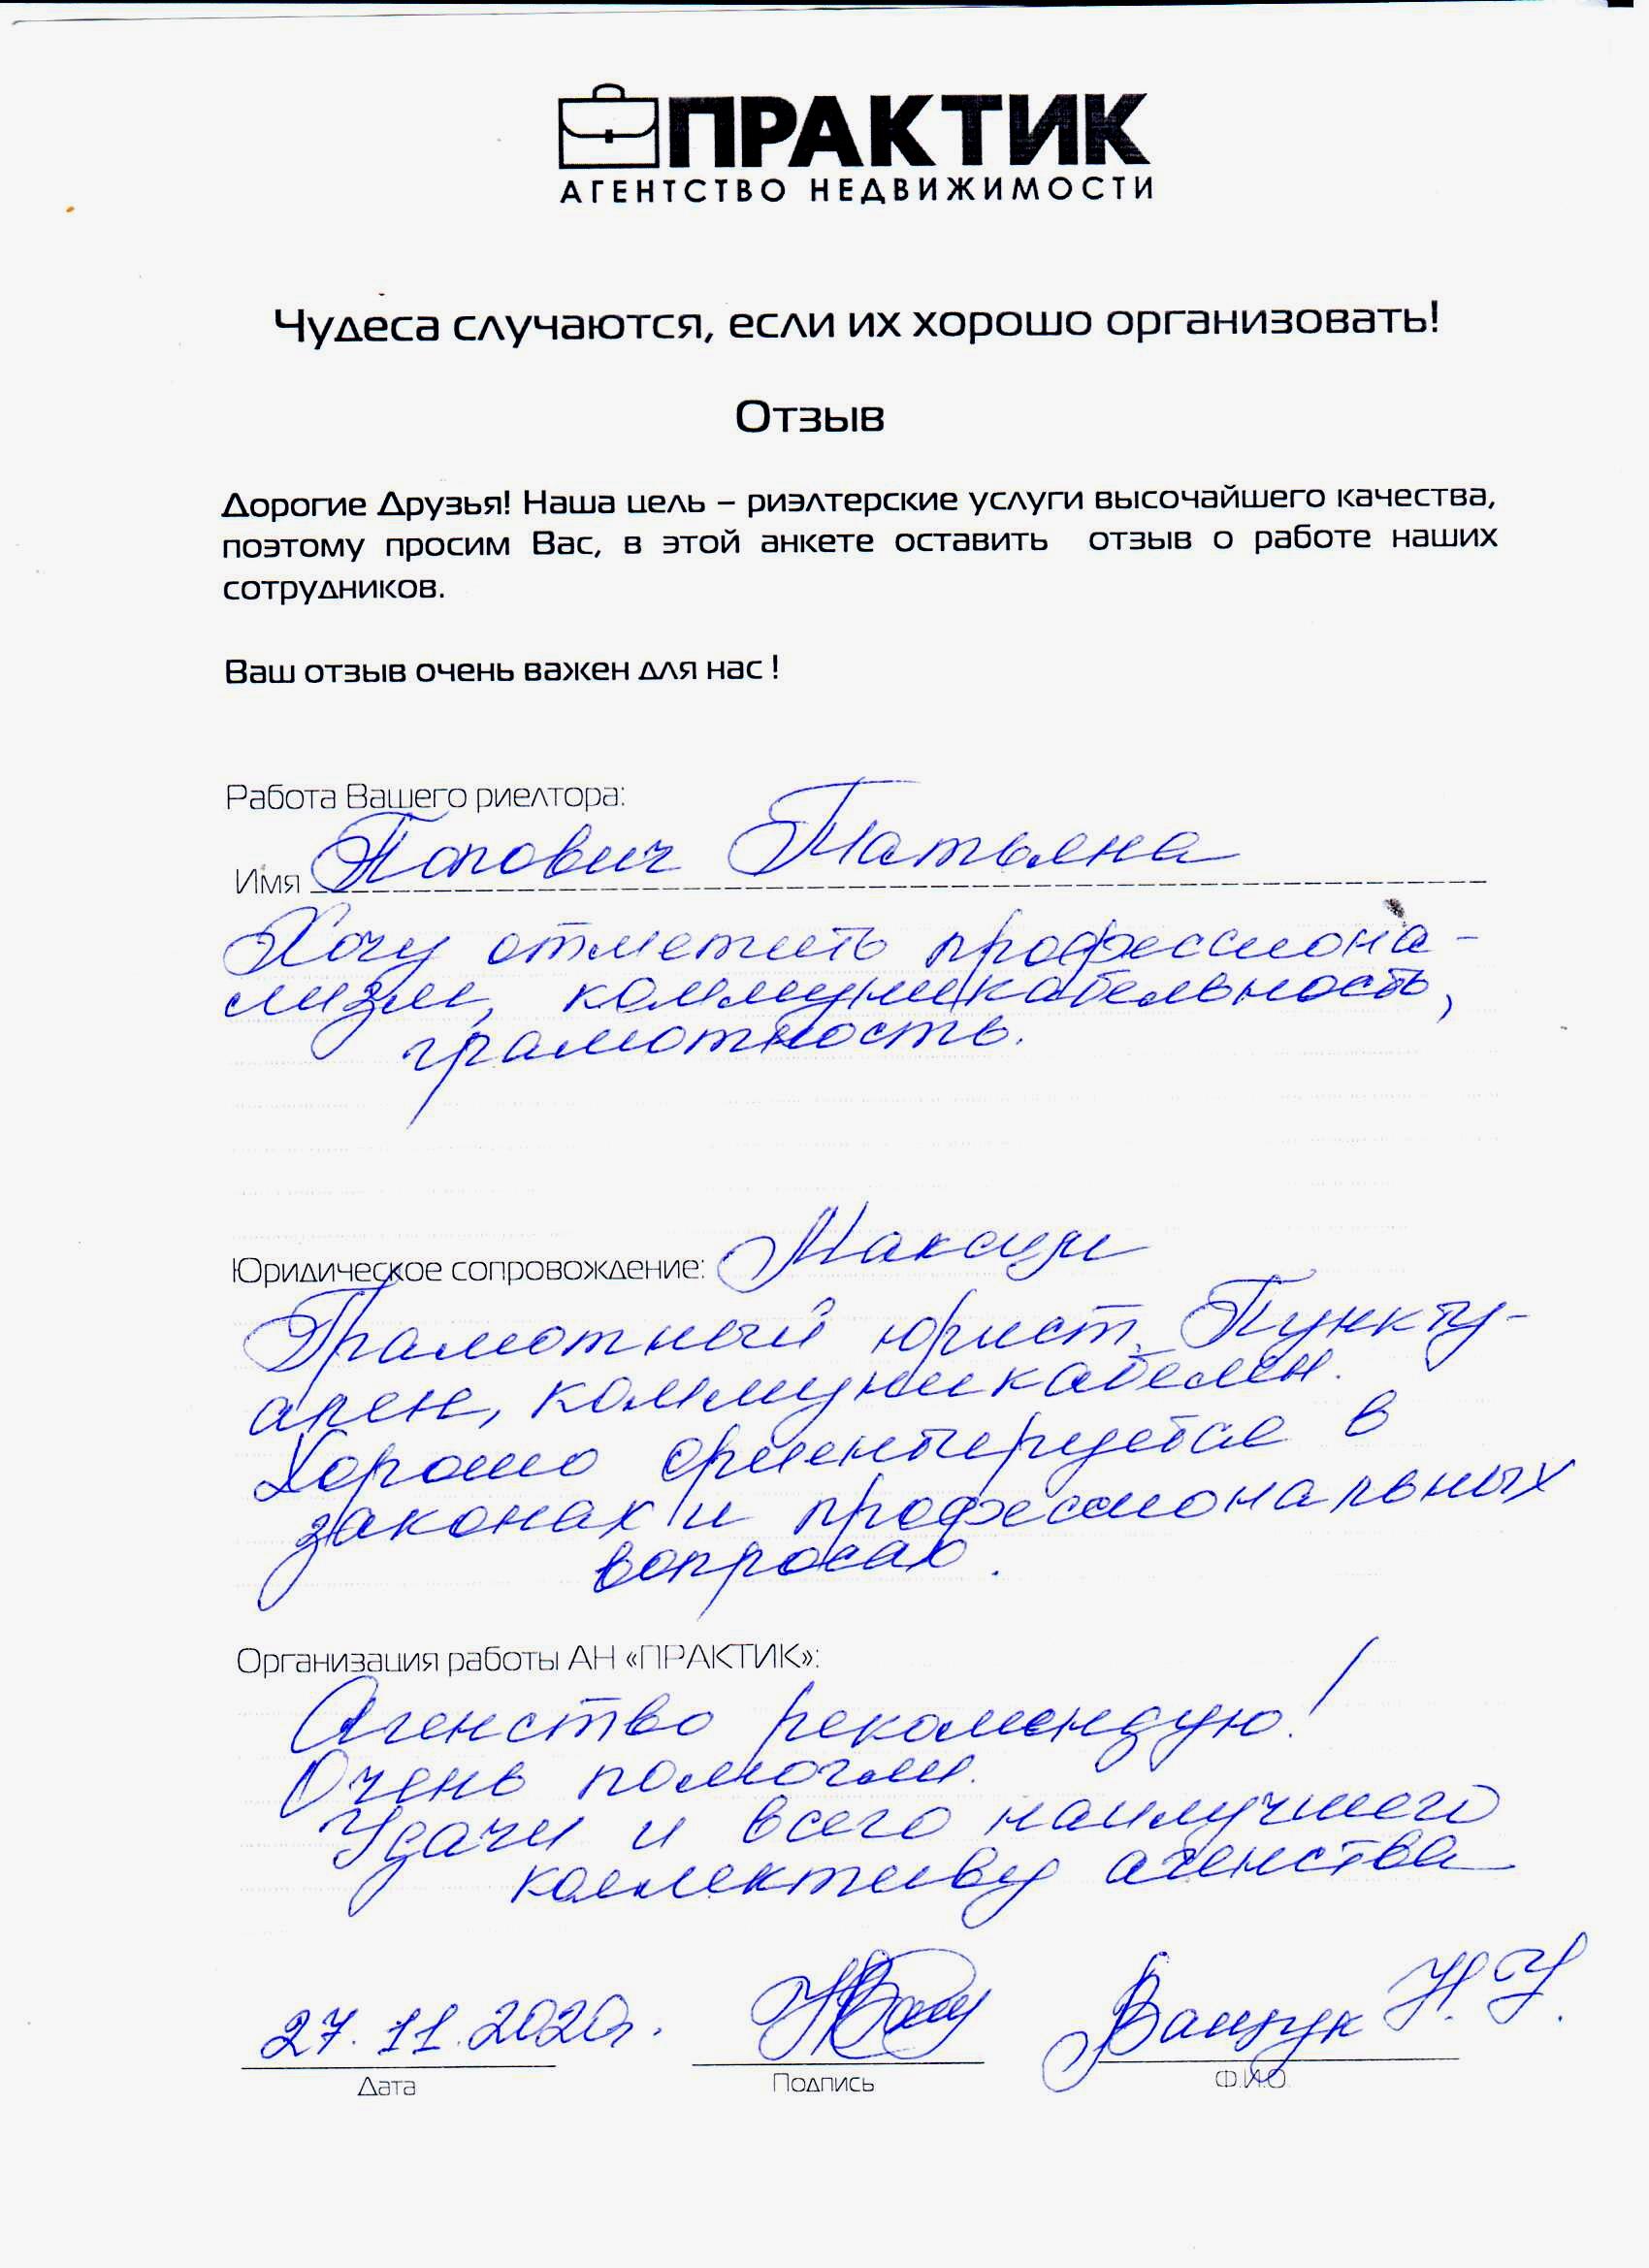 ПРАКТИК
АГЕНТСТВО НЕДВИЖИМОСТИ
Чудеса случаются, если их хорошо организовать!
Отзыв
Дорогие Друзья! Наша цель – риэлтерские услуги высочайшего качества,
поэтому просим Вас, в этой анкете оставить отзыв о работе наших
сотрудников.
Ваш отзыв очень важен для нас !
Работа Вашего риелтора:
Имя Попович Татьяна
Хочу отметить профессиона-
лизм, коммуникабельность,
грамотность.
Юридическое сопровождение: Максим
Грамотный юрист. Пункту-
ален, коммуникабелен.
Хорошо ориентируется в
законах и профессиональных
вопросах.
Организация работы АН «ПРАКТИК»:
Агенство рекомендую!
Очень помогли.
Удачи и всего наилучшего
коллективу агенства
27.11.2020г. Ващук Н.У.
Дата Подпись Ф.И.О.